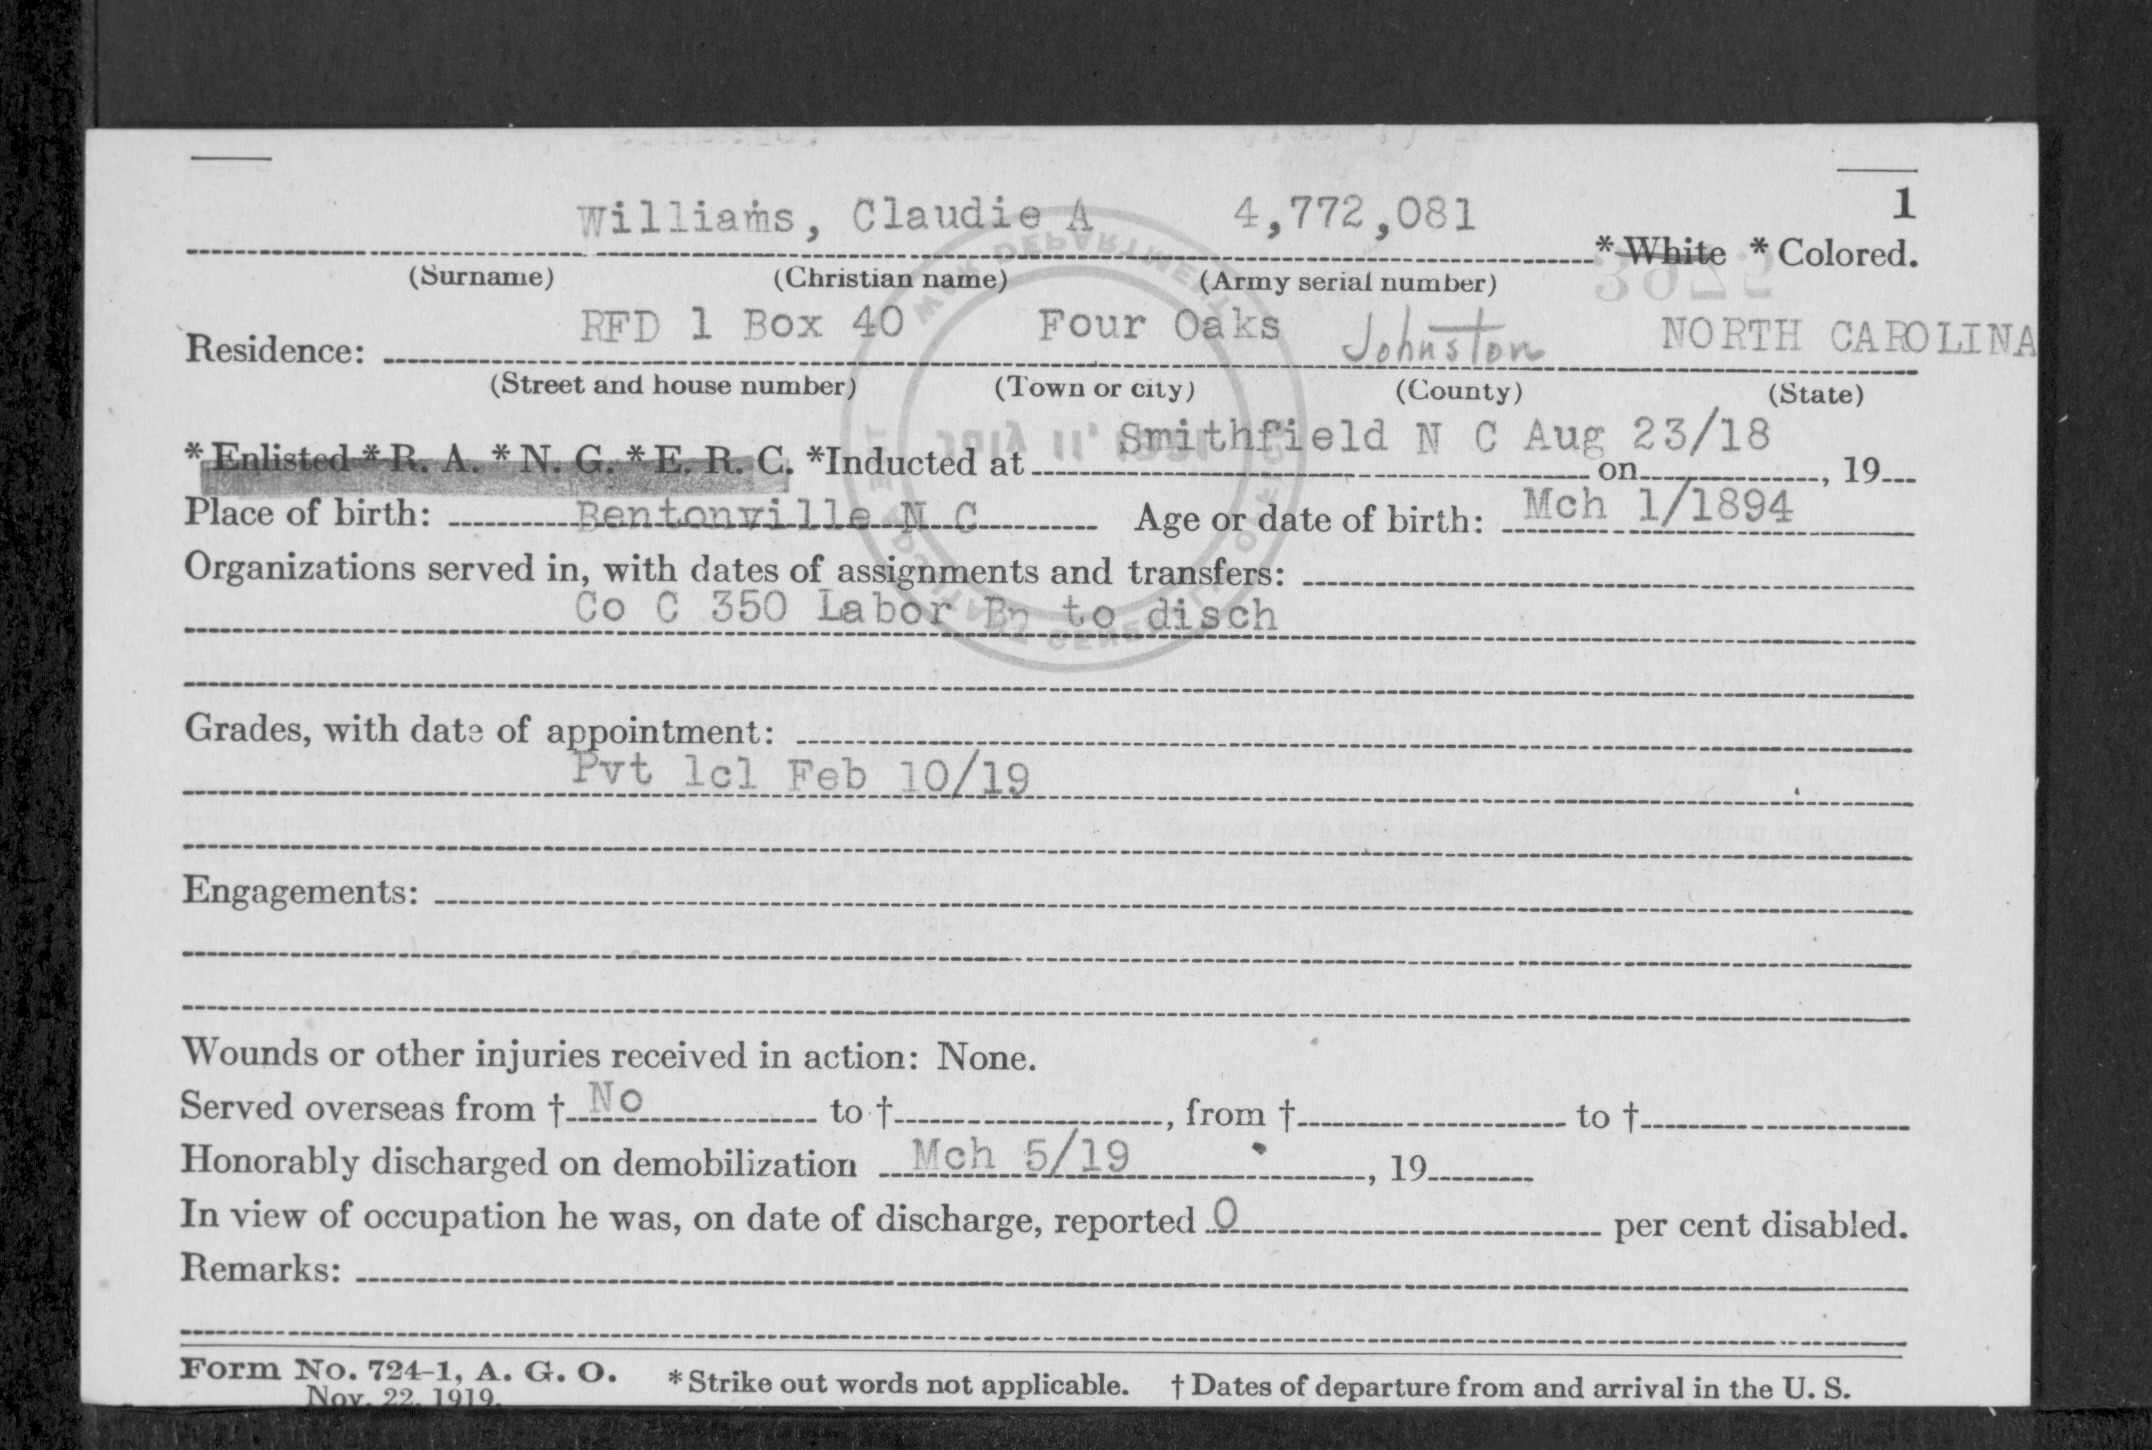 Williams, Claudie A 4,772,081 1
* White * Colored.
(Surname) (Christian name) (Army serial number)
Residence: RFD 1 Box 40 Four Oaks Johnston NORTH CAROLINA
(Street and house number) (Town or city) (County) (State)
* Enlisted * R. A. * N. G. * E. R. C. *Inducted at Smithfield N C Aug 23/18 on , 19
Place of birth: Bentonville N C Age or date of birth: Mch 1/1894
Organizations served in, with dates of assignments and transfers:
Co C 350 Labor Bn to disch
Grades, with date of appointment:
Pvt 1cl Feb 10/19
Engagements:
Wounds or other injuries received in action: None.
Served overseas from † No to † , from † to †
Honorably discharged on demobilization Mch 5/19 , 19
In view of occupation he was, on date of discharge, reported 0 per cent disabled.
Remarks:
Form No. 724-1, A. G. O. * Strike out words not applicable. † Dates of departure from and arrival in the U. S.
Nov. 22, 1919.